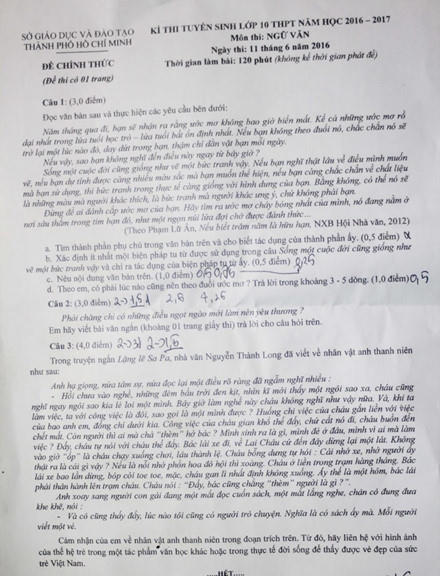 SỞ GIÁO DỤC VÀ ĐÀO TẠO
THÀNH PHỐ HỒ CHÍ MINH
KÌ THI TUYỂN SINH LỚP 10 THPT NĂM HỌC 2016 – 2017
Môn thi: NGỮ VĂN
Ngày thi: 11 tháng 6 năm 2016
ĐỀ CHÍNH THỨC
Thời gian làm bài: 120 phút (không kể thời gian phát đề)
(Đề thi có 01 trang)
Câu 1: (3,0 điểm)
Đọc văn bản sau và thực hiện các yêu cầu bên dưới:
Năm tháng qua đi, bạn sẽ nhận ra rằng ước mơ không bao giờ biến mất. Kể cả những ước mơ rồ
dại nhất trong lứa tuổi học trò – lứa tuổi bất ổn định nhất. Nếu bạn không theo đuổi nó, chắc chắn nó sẽ
trở lại một lúc nào đó, day dứt trong bạn, thậm chí dằn vặt bạn mỗi ngày.
Nếu vậy, sao bạn không nghĩ đến điều này ngay từ bây giờ ?
Sống một cuộc đời cũng giống như vẽ một bức tranh vậy. Nếu bạn nghĩ thật lâu về điều mình muốn
vẽ, nếu bạn dự tính được càng nhiều màu sắc mà bạn muốn thể hiện, nếu bạn càng chắc chắn về chất liệu
mà bạn sử dụng, thì bức tranh trong thực tế càng giống với hình dung của bạn. Bằng không, có thể nó sẽ
là những màu mà người khác thích, là bức tranh mà người khác ưng ý, chứ không phải bạn.
Đừng để ai đánh cắp ước mơ của bạn. Hãy tìm ra ước mơ cháy bỏng nhất của mình, nó đang nằm ở
nơi sâu thẳm trong tim bạn đó, như một ngọn núi lửa đợi chờ được đánh thức...
(Theo Phạm Lữ Ân, Nếu biết trăm năm là hữu hạn, NXB Hội Nhà văn, 2012)
a. Tìm thành phần phụ chú trong văn bản trên và cho biết tác dụng của thành phần ấy. (0,5 điểm)
b. Xác định ít nhất một biện pháp tu từ được sử dụng trong câu Sống một cuộc đời cũng giống như
vẽ một bức tranh vậy và chỉ ra tác dụng của biện pháp tu từ ấy. (0,5 điểm) 0,25
c. Nêu nội dung văn bản trên. (1,0 điểm)
d. Theo em, có phải lúc nào cũng nên theo đuổi ước mơ ? Trả lời trong khoảng 3 - 5 dòng. (1,0 điểm) 0,5
Câu 2: (3,0 điểm) 2,8 4,25
Phải chăng chỉ có những điều ngọt ngào mới làm nên yêu thương ?
Em hãy viết bài văn ngắn (khoảng 01 trang giấy thi) trả lời cho câu hỏi trên.
Câu 3: (4,0 điểm)
Trong truyện ngắn Lặng lẽ Sa Pa, nhà văn Nguyễn Thành Long đã viết về nhân vật anh thanh niên
như sau:
Anh hạ giọng, nửa tâm sự, nửa đọc lại một điều rõ ràng đã ngẫm nghĩ nhiều :
- Hồi chưa vào nghề, những đêm bầu trời đen kịt, nhìn kĩ mới thấy một ngôi sao xa, cháu cũng
nghĩ ngay ngôi sao kia lẻ loi một mình. Bây giờ làm nghề này cháu không nghĩ như vậy nữa. Vả, khi ta
làm việc, ta với công việc là đôi, sao gọi là một mình được ? Huống chi việc của cháu gắn liền với việc
của bao anh em, đồng chí dưới kia. Công việc của cháu gian khổ thế đấy, chứ cất nó đi, cháu buồn đến
chết mất. Còn người thì ai mà chả “thèm” hở bác ? Mình sinh ra là gì, mình đẻ ở đâu, mình vì ai mà làm
việc ? Đấy, cháu tự nói với cháu thế đấy. Bác lái xe đi, về Lai Châu cứ đến đây dừng lại một lát. Không
vào giờ “ốp” là cháu chạy xuống chơi, lâu thành lệ. Cháu bỗng dưng tự hỏi : Cái nhớ xe, nhớ người ấy
thật ra là cái gì vậy ? Nếu là nỗi nhớ phồn hoa đô hội thì xoàng. Cháu ở liền trong trạm hàng tháng. Bác
lái xe bao lần dừng, bóp còi toe toe, mặc, cháu gan lì nhất định không xuống. Ấy thế là một hôm, bác lái
phải thân hành lên trạm cháu. Cháu nói : “Đấy, bác cũng chẳng “thèm” người là gì ?”.
Anh xoay sang người con gái đang một mắt đọc cuốn sách, một mắt lắng nghe, chân cô đung đưa
khe khẽ, nói :
- Và cô cũng thấy đấy, lúc nào tôi cũng có người trò chuyện. Nghĩa là có sách ấy mà. Mỗi người
viết một vẻ.
Cảm nhận của em về nhân vật anh thanh niên trong đoạn trích trên. Từ đó, hãy liên hệ với hình ảnh
của thế hệ trẻ trong một tác phẩm văn học khác hoặc trong thực tế đời sống để thấy được vẻ đẹp của sức
trẻ Việt Nam.
.....HẾT.....